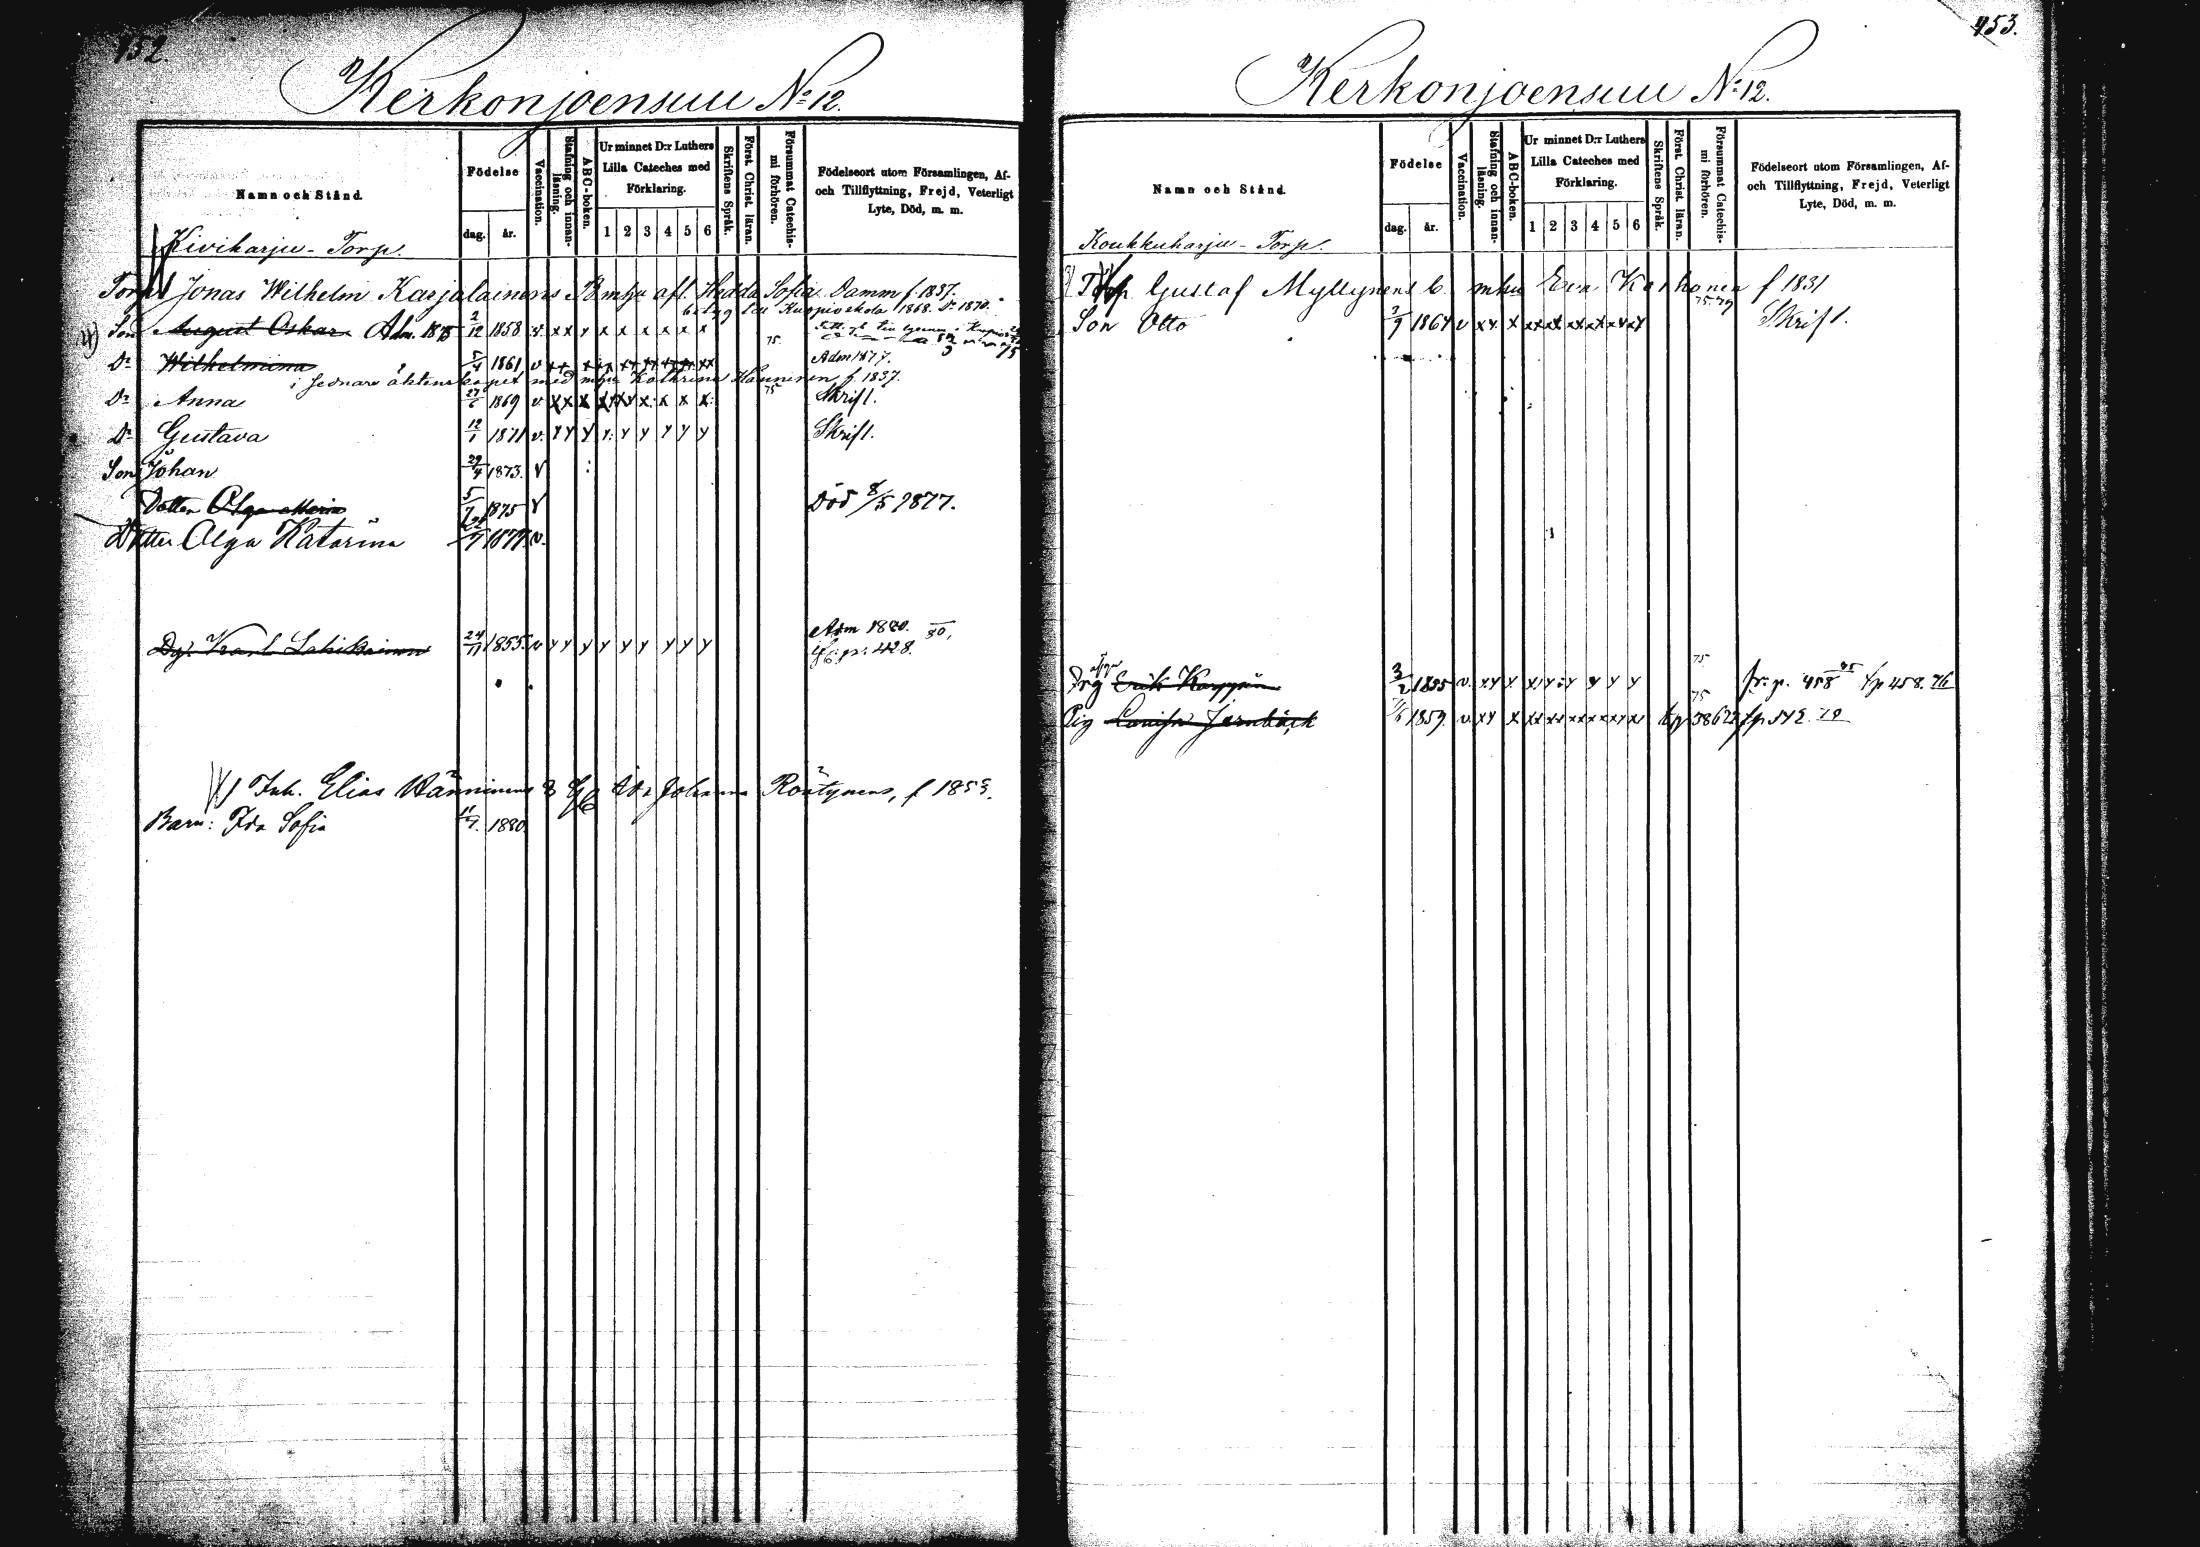 452.
Kerkonjoensuu No 12.
Namn och Stånd.
Födelse
dag. år.
Vaccination.
Stafning och innanläsning.
ABC-boken.
Ur minnet D:r Luthers Lilla Cateches med Förklaring.
1 2 3 4 5 6
Skriftens Språk.
Först. Christ. läran.
Försummat Catechismi förhören.
Födelseort utom Församlingen, Af- och Tillflyttning, Frejd, Veterligt Lyte, Död, m. m.
Kiviharju - Torp.
Torp Jonas Wilhelm Karjalainens B mhu afl. Hedda Sofia Damm f. 1837.
betyg till Kuopio skola 1868. Do 1870.
Son August Oskar Adm. 1875 2/12 1858 v. x x y x x x x x x 75
Dr Wilhelmina 5/4 1861 v Adm 1877.
i sednare äktenskapet med mhu Kathrina Hänninen f. 1837.
Dr Anna 27/6 1869 v x x x x x x x x x 75 Skrift.
Dr Gustava 12/1 1871 v. y y y y y y y y y Skrift.
Son Johan 29/4 1873. v
Dotter Olga Maria 5/7 1875 v Död 8/5 1877.
Dotter Olga Katarina 1877 v.
Dg. Karl 24/11 1855. v y y y y y y y y y Adm 1880. 80,
fr. p. 428.
Inh. Elias Hänninens B Johanna Röntynens, f 1853.
Barn: Ida Sofia 1880.
453.
Kerkonjoensuu No 12.
Namn och Stånd.
Födelse
dag. år.
Vaccination.
Stafning och innanläsning.
ABC-boken.
Ur minnet D:r Luthers Lilla Cateches med Förklaring.
1 2 3 4 5 6
Skriftens Språk.
Först. Christ. läran.
Försummat Catechismi förhören.
Födelseort utom Församlingen, Af- och Tillflyttning, Frejd, Veterligt Lyte, Död, m. m.
Koukkuharju - Torp.
Torp. Gustaf Myllynens b. mhu Eva Korhonen f 1831
Son Otto 1864 v 75.79 Skrift.
Drg Erik Karppinen 3/2 1855 v. 75 fr. p. 458 75 fp 458. 76
Pig Lovisa Jernbäck 1859. v 75